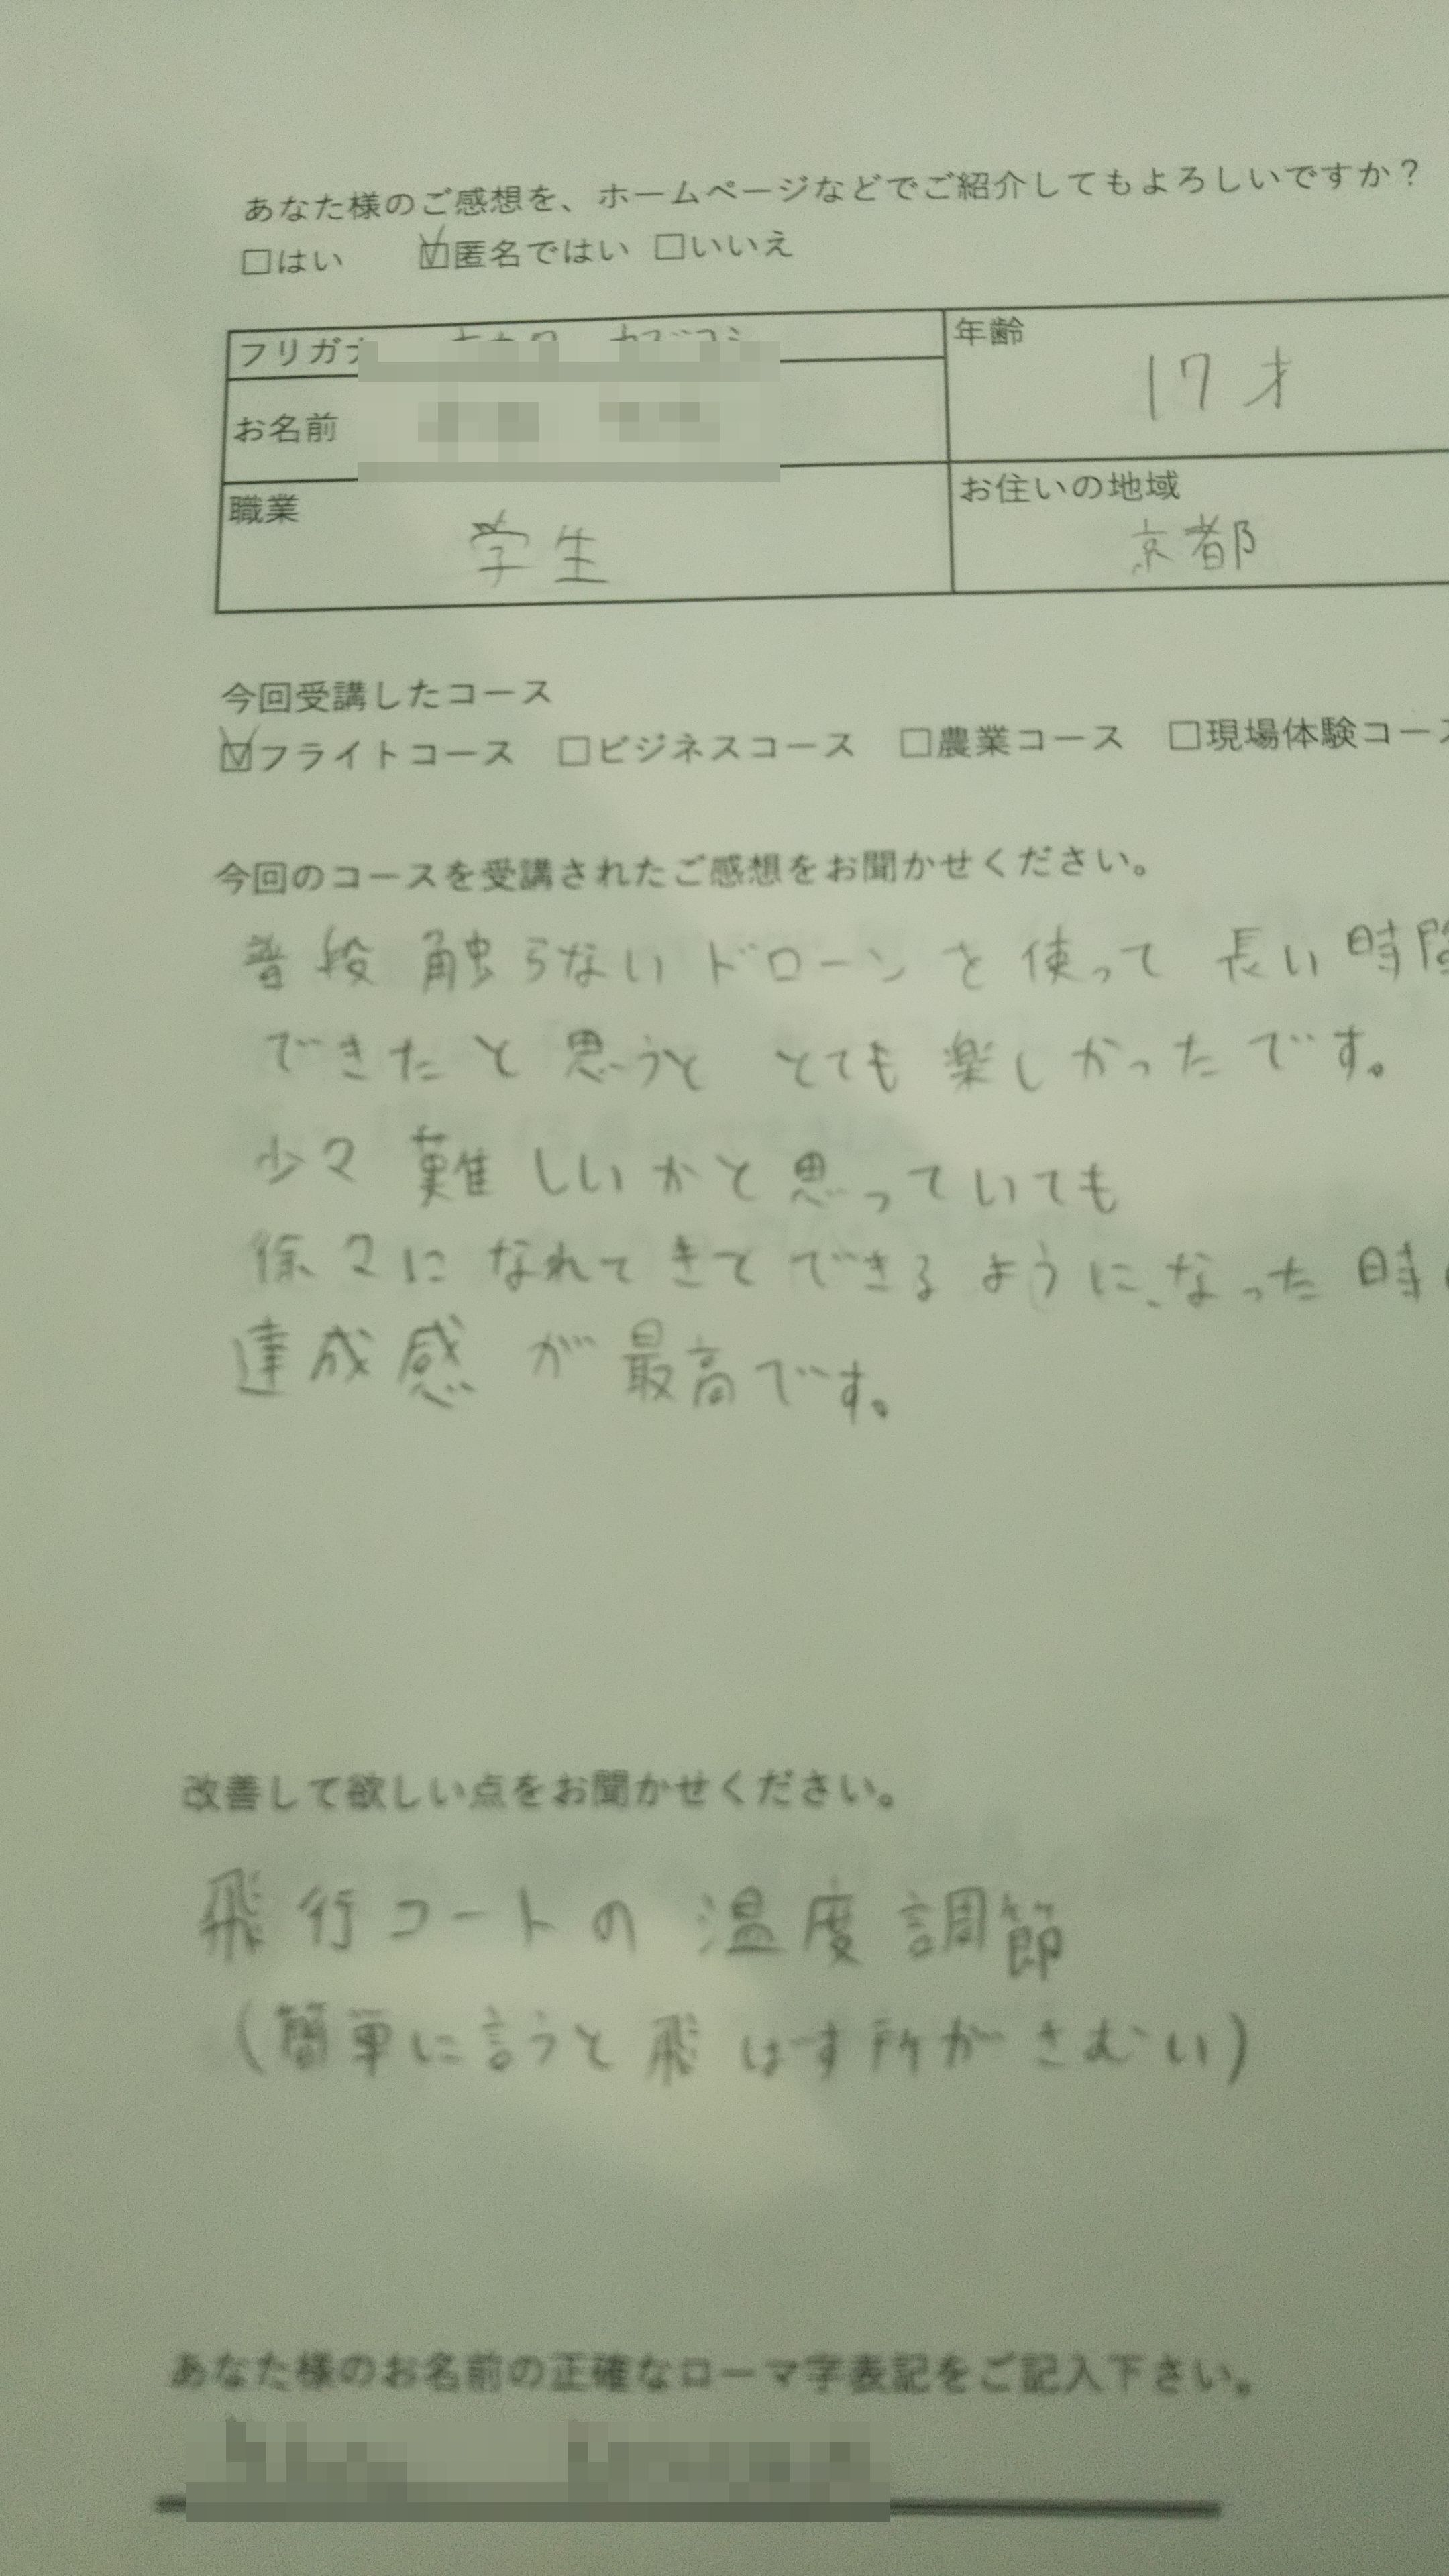 あなた様のご感想を、ホームページなどでご紹介してもよろしいですか？
□はい ☑匿名ではい □いいえ
フリガナ
年齢
17才
お名前
職業
学生
お住いの地域
京都
今回受講したコース
☑フライトコース □ビジネスコース □農業コース □現場体験コース
今回のコースを受講されたご感想をお聞かせください。
普段触らないドローンを使って長い時間
できたと思うととても楽しかったです。
少々難しいかと思っていても
徐々になれてきてできるように、なった時
達成感が最高です。
改善して欲しい点をお聞かせください。
飛行コートの温度調節
(簡単に言うと飛ばす所がさむい)
あなた様のお名前の正確なローマ字表記をご記入下さい。